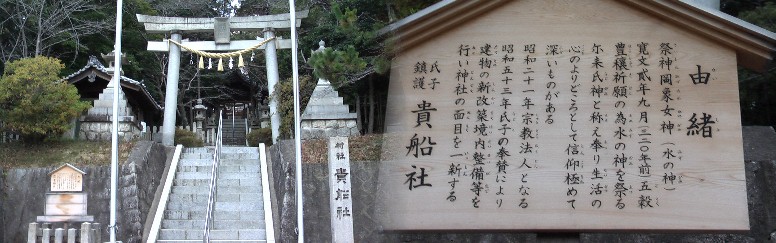 由緒
祭神岡象女神(水の神)
寛文貳年九月(三二〇年前)五穀
豊穰祈願の為水の神を祭る
尓来氏神と称え奉り生活の
心のよりどころとして信仰極めて
深いものがある
昭和二十一年宗教法人となる
昭和五十三年氏子の奉賛により
建物の新改築境内整備等を
行い神社の面目を一新する
氏子
鎮護
貴船社
村社 貴船社